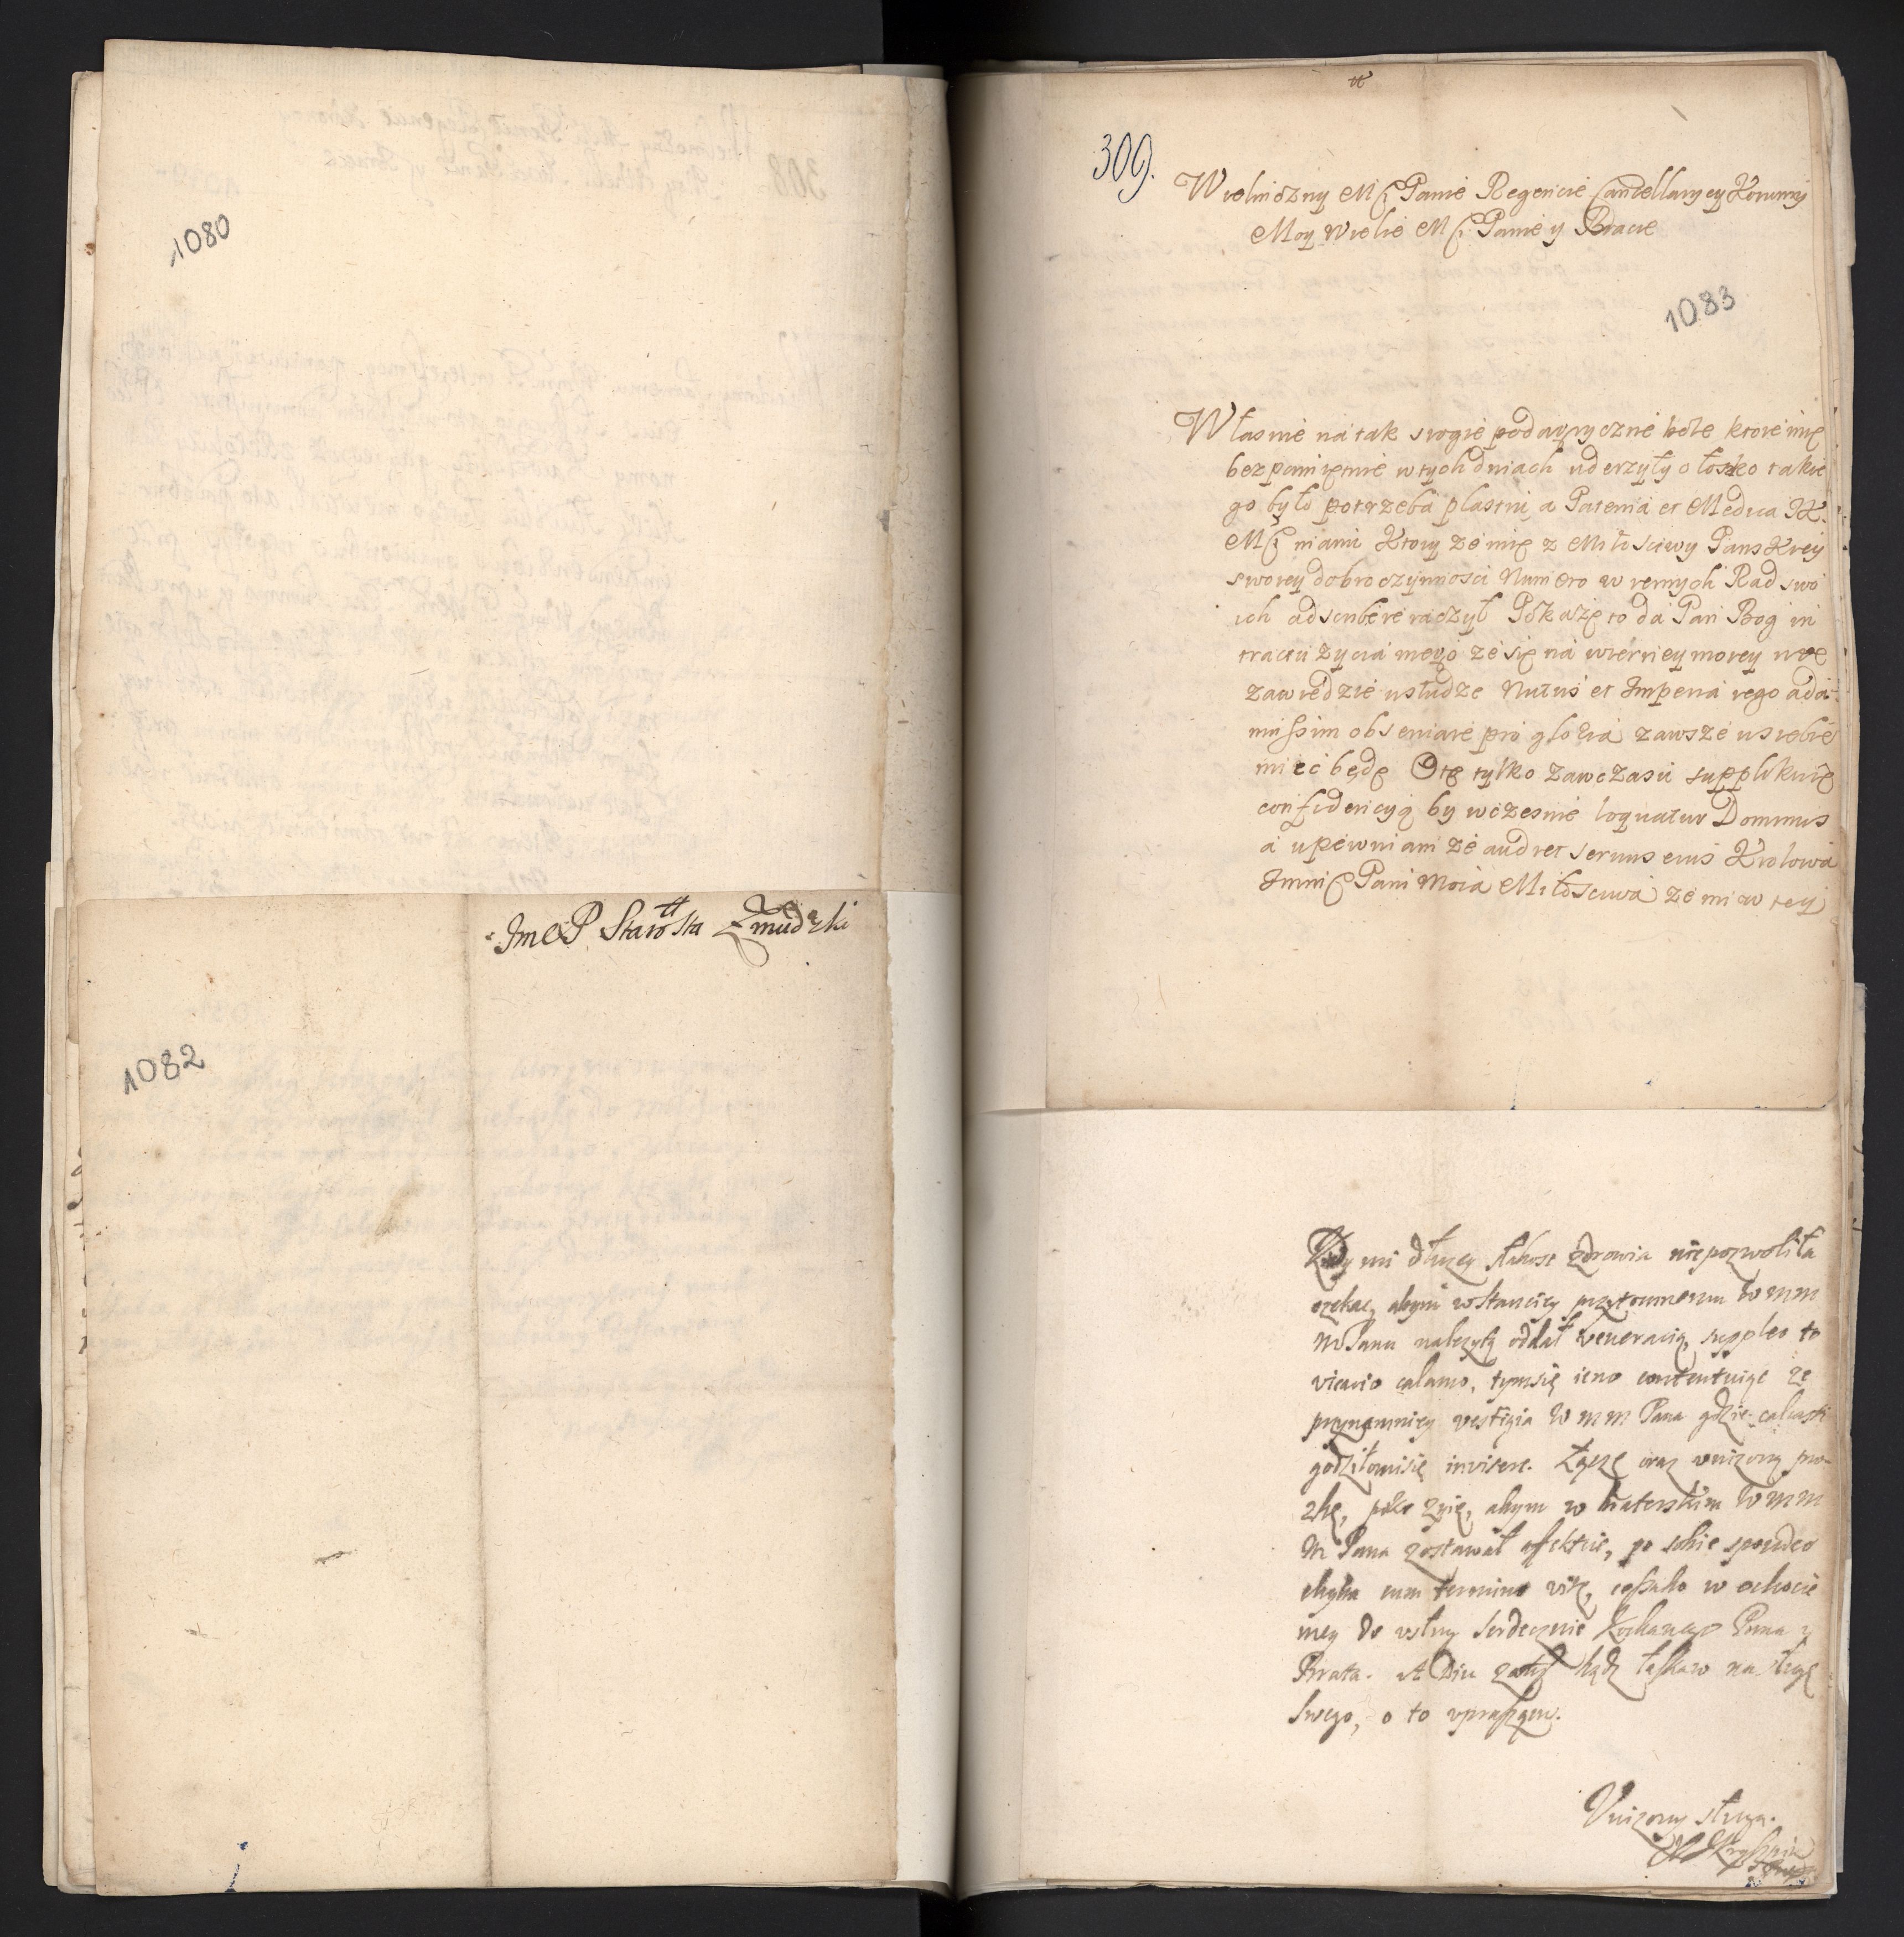 1080
Jm P Starosta Zmudzki
1082
309.
Wielmożny M Panie Regencie Cancellaryey Koronny
Moy Wielie M Panie y Bracie
1083
Własnie na tak srogie podagryczne bole ktore mię
bezpamiętnie wtych dniach uderzyły o łoszko takie
go było potrzeba plastru a Paterna et Medica JK.
M manu Ktory że mię z Miłosciwy Panskiey
swoiey dobroczynnosci Numero wiernych Rad swo
ich adscribere raczył Pokażę to da Pan Bog in
tractu życia mego że się na wierney moiey nie
zawiedzie usłudze Nutus et Imperia iego ada
mussim observare pro gloria zawsze u siebie
miec będę Otę tylko zawczasu supplikuię
confidencyą by wczesnie loquatur Dominus
a upewniam że audiet servus eius Krolowa
Jmm Pani Moia Miłosciwa że mi w tey
mi dłuzey słabosc zdrowia niepozwoliła
czekac, abym wstancicy przytomnemu W mm
mPanu nalezytą oddał veneracią, suppleo to
vicario calamo, tymsię ieno contentuiąc ze
przynamniey vestigia W m m Pana gdzie
godziłomisię invisere. Łączę oraz unizoną pro
zbę, poko zyię, abym w braterskim W mm
m Pana zostawał afekcie, po sobie spondeo
chyba cum termino vitę, w ochocie
mey do usług serdecznie kochanego Pana y
Brata. A bądz łaskaw na sługę
swego, o to upraszam.
Unizony sługa.